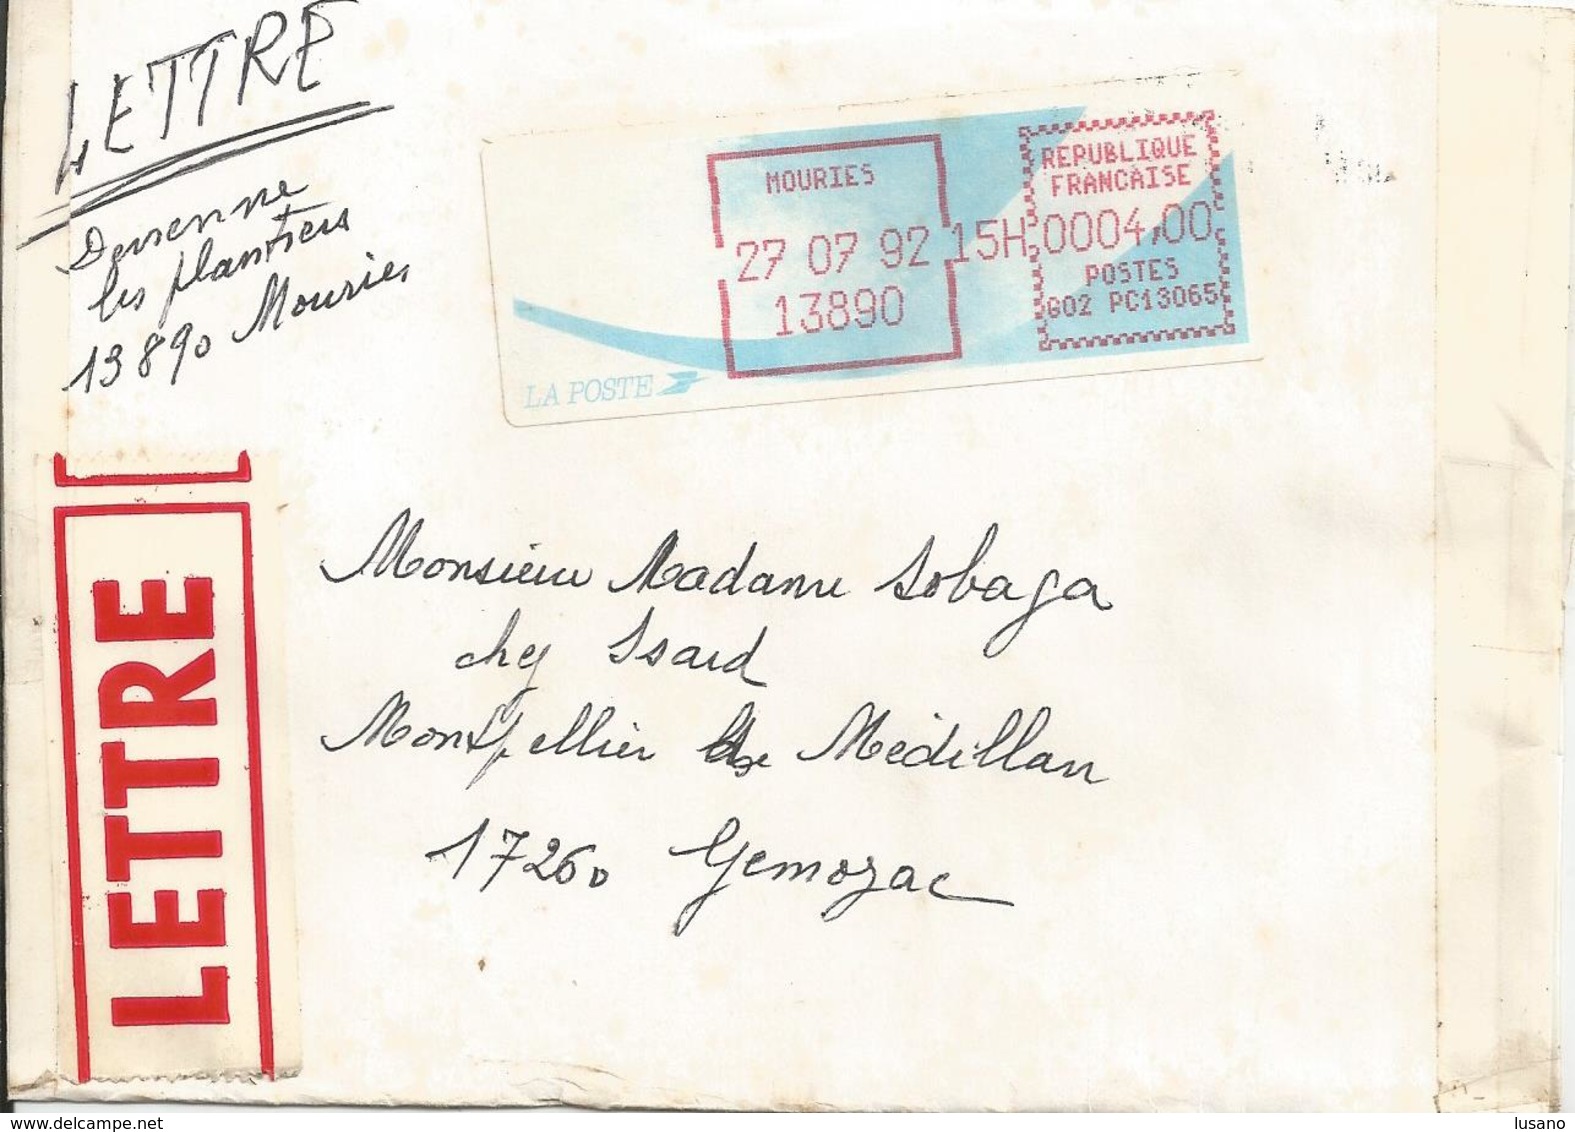 LETTRE
Durenne
les plantiers
13890 Mouries
MOURIES
27 07 92 15H
13890
REPUBLIQUE
FRANCAISE
0004,00
POSTES
G02 PC13065
LA POSTE
LETTRE
Monsieur Madame Sobaga
chez Isard
Montpellier de Médillan
17260 Gemozac
www.delcampe.net
lusano